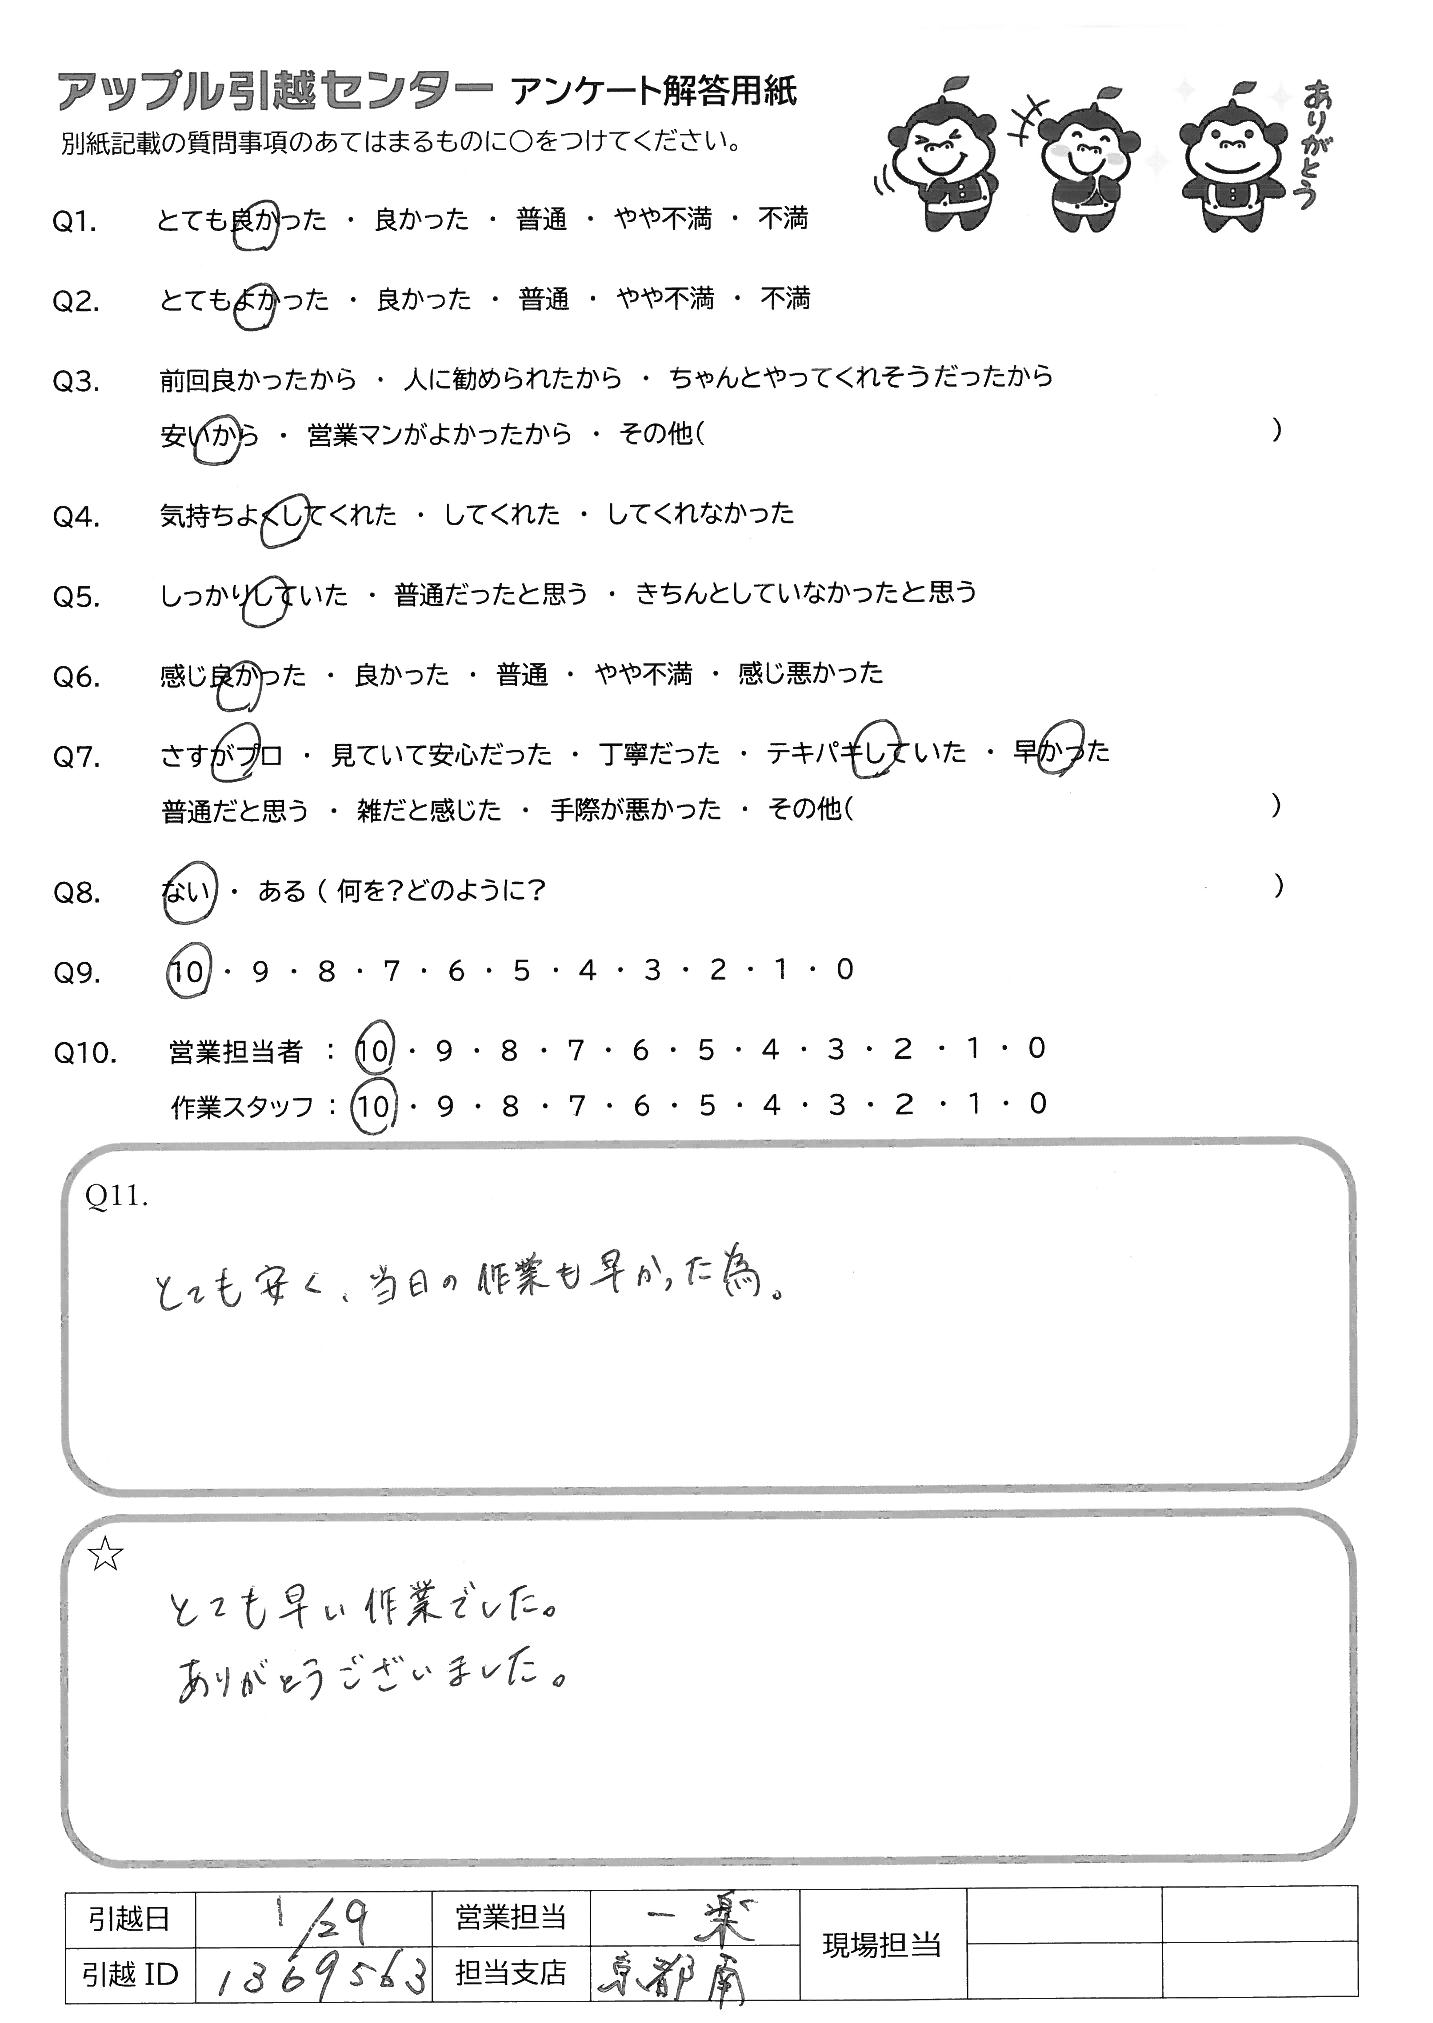 アップル引越センター アンケート解答用紙
ありがとう
別紙記載の質問事項のあてはまるものに○をつけてください。
Q1. とても良かった ・ 良かった ・ 普通 ・ やや不満 ・ 不満
Q2. とてもよかった ・ 良かった ・ 普通 ・ やや不満 ・ 不満
Q3. 前回良かったから ・ 人に勧められたから ・ ちゃんとやってくれそうだったから
安いから ・ 営業マンがよかったから ・ その他( )
Q4. 気持ちよくしてくれた ・ してくれた ・ してくれなかった
Q5. しっかりしていた ・ 普通だったと思う ・ きちんとしていなかったと思う
Q6. 感じ良かった ・ 良かった ・ 普通 ・ やや不満 ・ 感じ悪かった
Q7. さすがプロ ・ 見ていて安心だった ・ 丁寧だった ・ テキパキしていた ・ 早かった
普通だと思う ・ 雑だと感じた ・ 手際が悪かった ・ その他( )
Q8. ない ・ ある ( 何を?どのように? )
Q9. 10 ・ 9 ・ 8 ・ 7 ・ 6 ・ 5 ・ 4 ・ 3 ・ 2 ・ 1 ・ 0
Q10. 営業担当者 : 10 ・ 9 ・ 8 ・ 7 ・ 6 ・ 5 ・ 4 ・ 3 ・ 2 ・ 1 ・ 0
作業スタッフ : 10 ・ 9 ・ 8 ・ 7 ・ 6 ・ 5 ・ 4 ・ 3 ・ 2 ・ 1 ・ 0
Q11.
とても安く、当日の作業も早かった為。
☆
とても早い作業でした。
ありがとうございました。
引越日 1/29 営業担当 一楽 現場担当
引越ID 1369563 担当支店 京都南